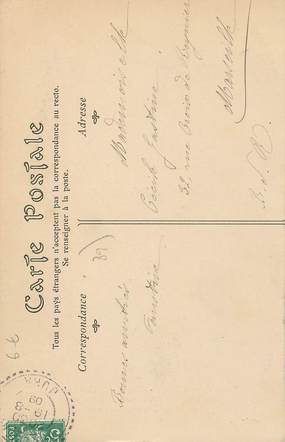 Carte Postale
Tous les pays étrangers n'acceptent pas la correspondance au recto.
Se renseigner à la poste.
Correspondance
Adresse
Bonnes amitiés
Mademoiselle
32, rue Croix de Régnier
Marseille
B. d. R.
JURA